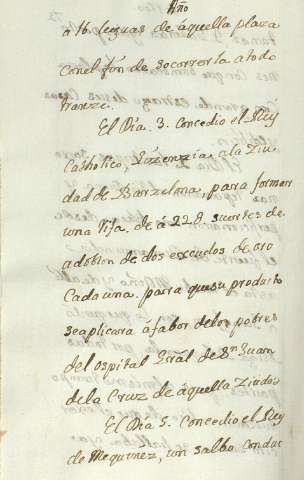 Año
a 16. leguas de aquella plaza
con el fin de socorrerla a todo
tranze.
El Dia. 3. Concedio el Rey
Catholico, Lizenzia, a la Ziu
dad de Barzelona, para formar
una Rifa. de á 228. suertes de
adoblon de dos escudos de oro
Cada una. para que su producto
se aplicara áfabor delos pobres
del ospital Gral de Sn Juan
de la Cruz de aquella Ziudad
El Dia 5. Concedio el Rey
de Mequinez, un salbo Conduc